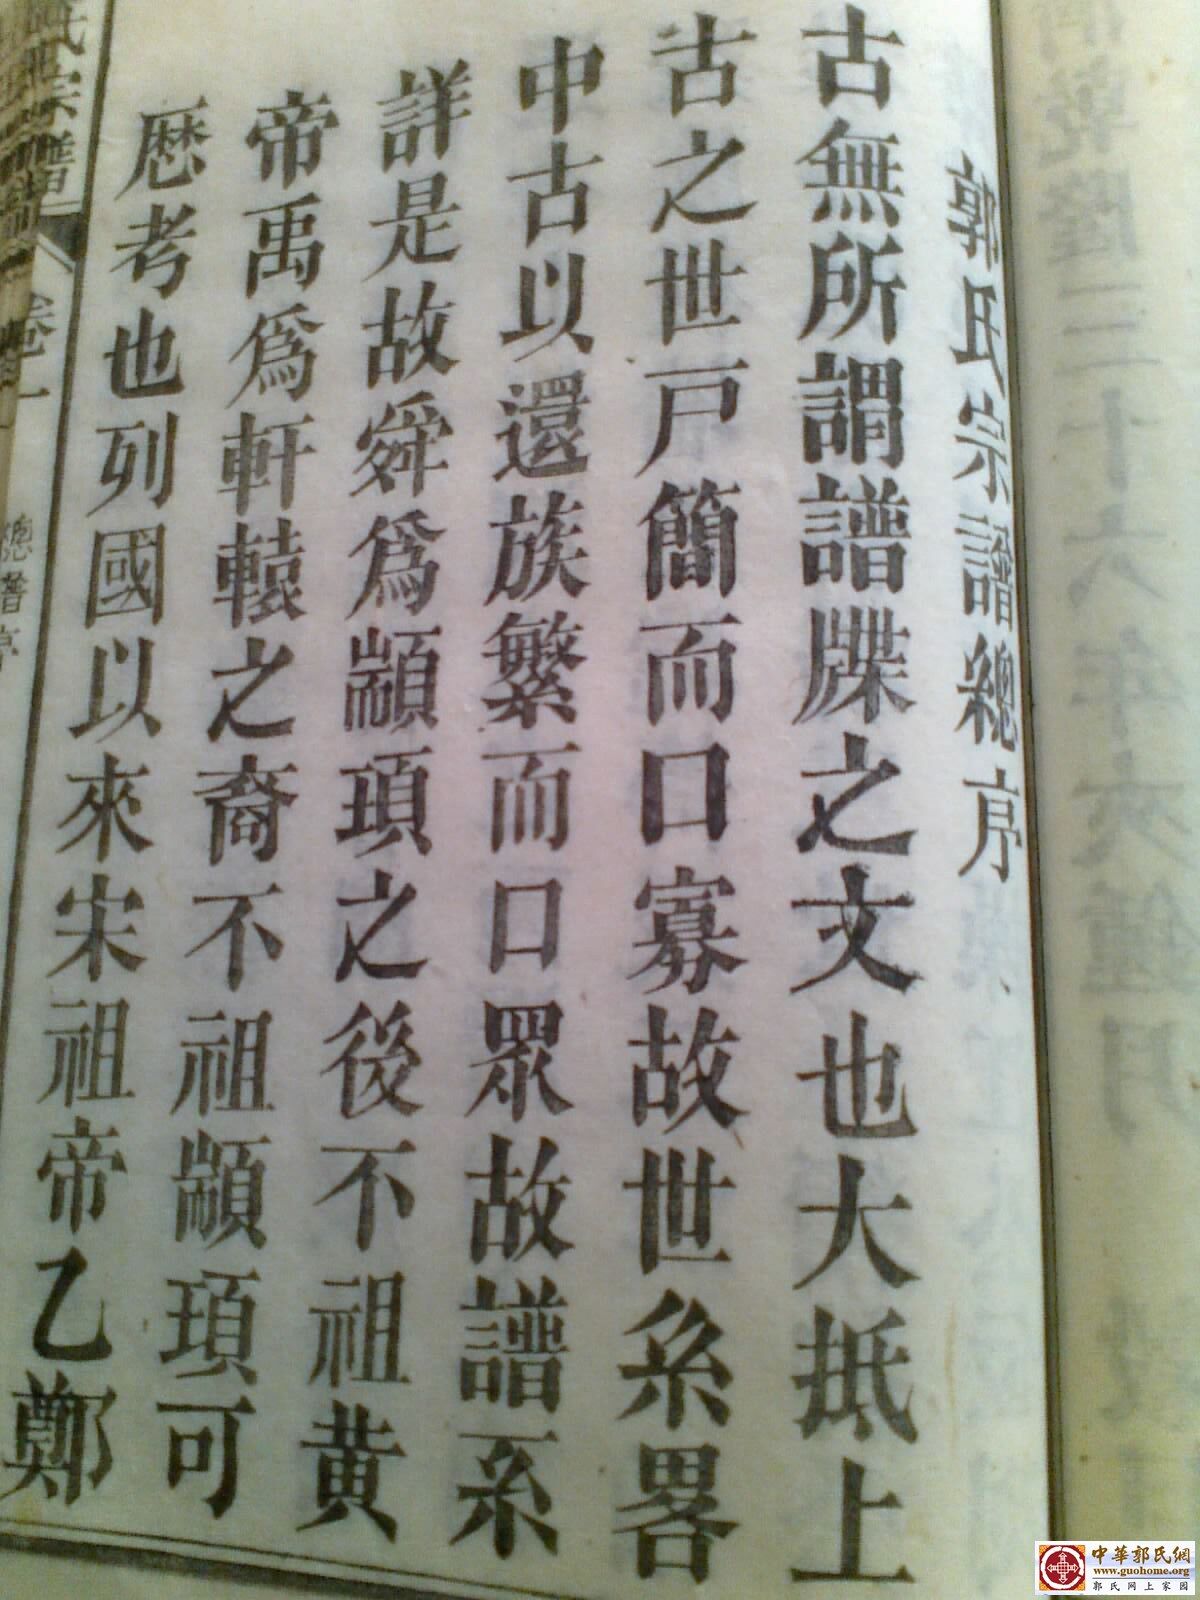 郭氏宗譜總序
古無所謂譜牒之文也大抵上
古之世戸簡而口寡故世系畧
中古以還族繁而口眾故譜系
詳是故舜爲顓頊之後不祖黄
帝禹爲軒轅之裔不祖顓頊可
歷考也列國以來宋祖帝乙鄭
氏宗譜
卷一
總譜序
中華郭氏網
www.guohome.org
郭氏网上家园